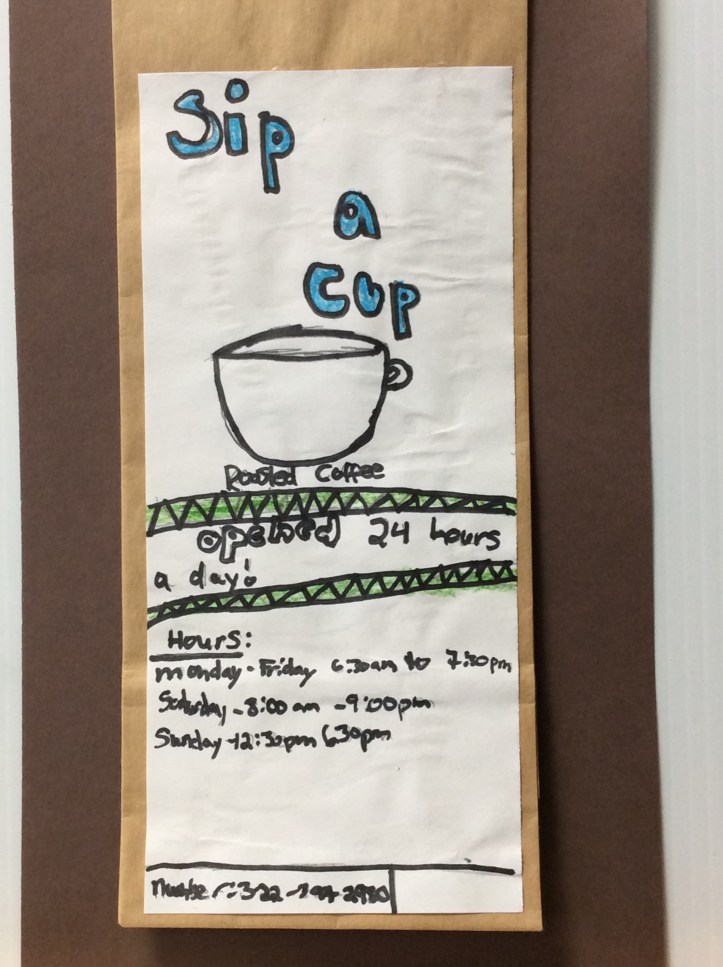 Sip
a
Cup
Roasted Coffee
opened 24 hours
a day!
Hours:
monday - Friday 6:30am to 7:30pm
Saturday - 8:00 am - 9:00pm
Sunday - 12:30pm 6:30pm